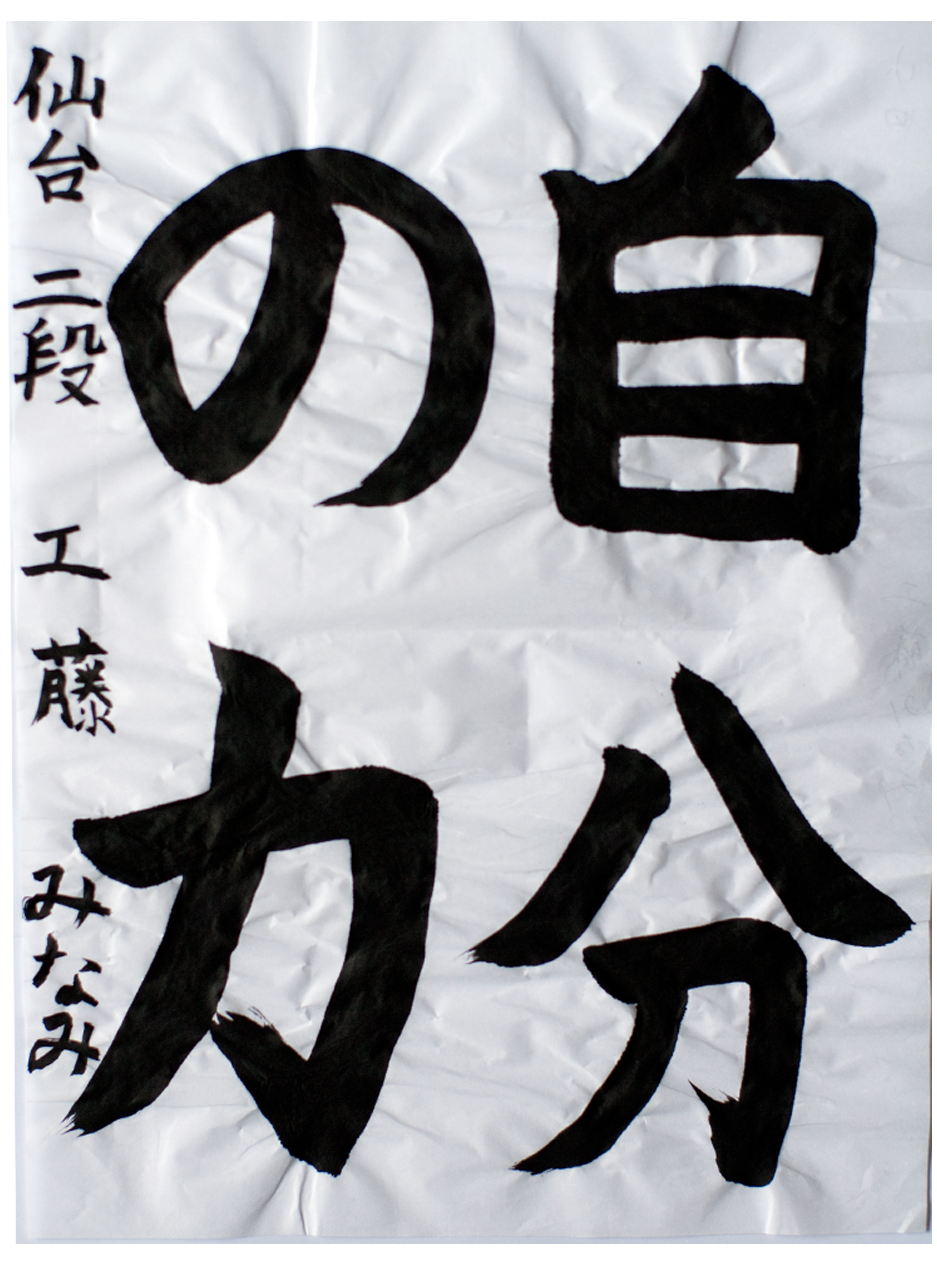 自分
の力
仙台 二段 工藤 みなみ